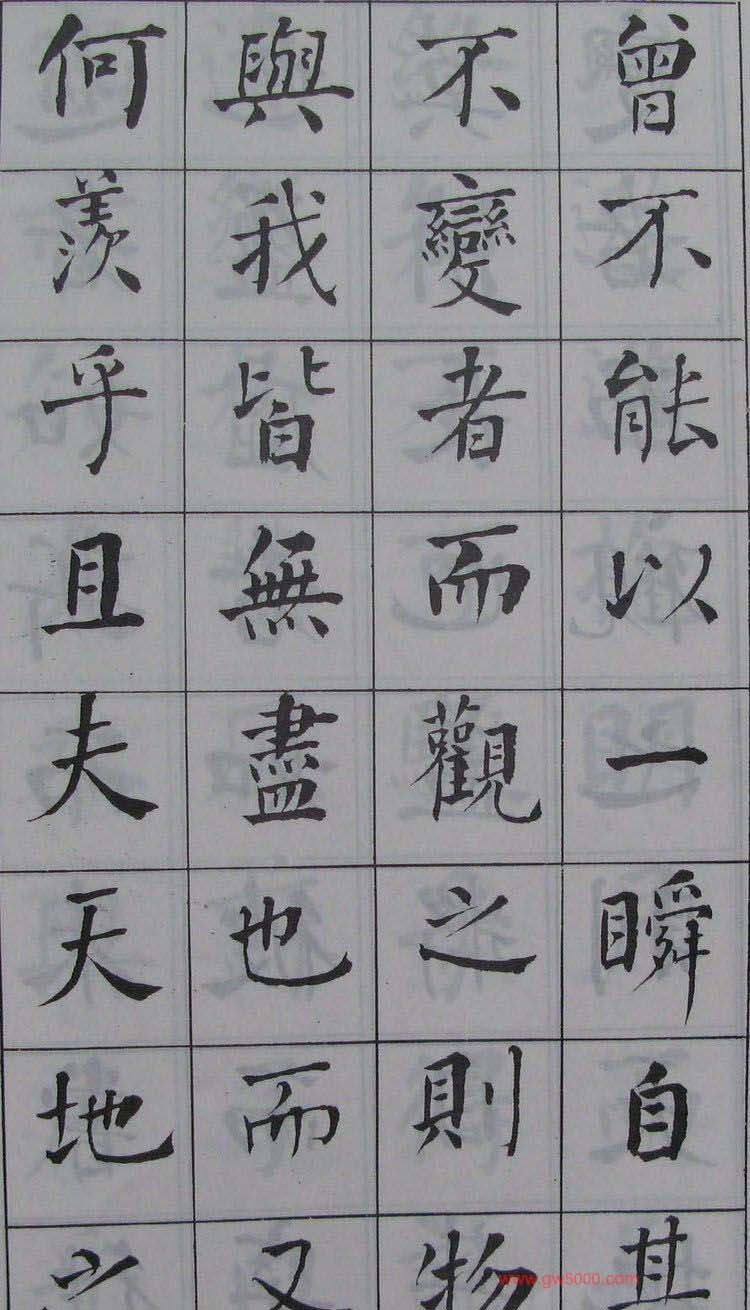 曾不能以一瞬自其
不變者而觀之則物
與我皆無盡也而又
何羨乎且夫天地之
www.gw5000.com